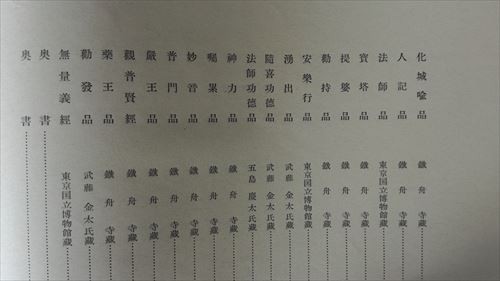 化城喩品 鐵舟寺蔵……
人記品 鐵舟寺蔵……
法師品 東京国立博物館蔵……
寶塔品 鐵舟寺蔵……
提婆品 鐵舟寺蔵……
勸持品 鐵舟寺蔵……
安樂行品 東京国立博物館蔵……
湧出品 武藤金太氏蔵……
隨喜功德品 武藤金太氏蔵……
法師功德品 五島慶太氏蔵……
神力品 鐵舟寺蔵……
囑累品 鐵舟寺蔵……
妙音品 鐵舟寺蔵……
普門品 鐵舟寺蔵……
嚴王品 鐵舟寺蔵……
觀普賢經 鐵舟寺蔵……
藥王品 鐵舟寺蔵……
勸發品 武藤金太氏蔵……
無量義經 東京国立博物館蔵……
奥書……
奥書……